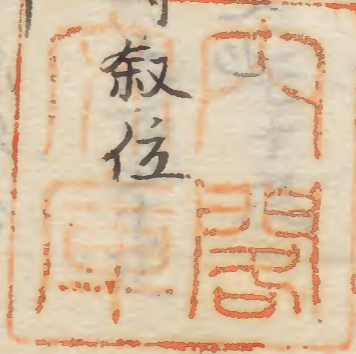 叙位
内閣
文庫